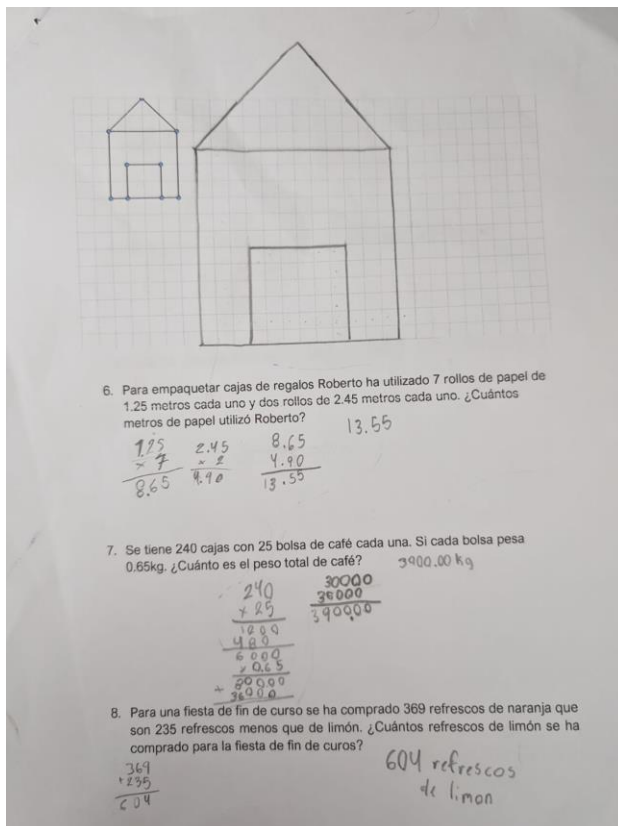 6. Para empaquetar cajas de regalos Roberto ha utilizado 7 rollos de papel de
1.25 metros cada uno y dos rollos de 2.45 metros cada uno. ¿Cuántos
metros de papel utilizó Roberto?
13.55
1.25
× 7
8.65
2.45
× 2
4.90
8.65
4.90
13.55
7. Se tiene 240 cajas con 25 bolsa de café cada una. Si cada bolsa pesa
0.65kg. ¿Cuánto es el peso total de café?
3900.00 kg
240
× 25
1200
480
6000
× 0.65
30000
+ 36000
30000
36000
3900.00
8. Para una fiesta de fin de curso se ha comprado 369 refrescos de naranja que
son 235 refrescos menos que de limón. ¿Cuántos refrescos de limón se ha
comprado para la fiesta de fin de curos?
369
+235
604
604 refrescos
de limon